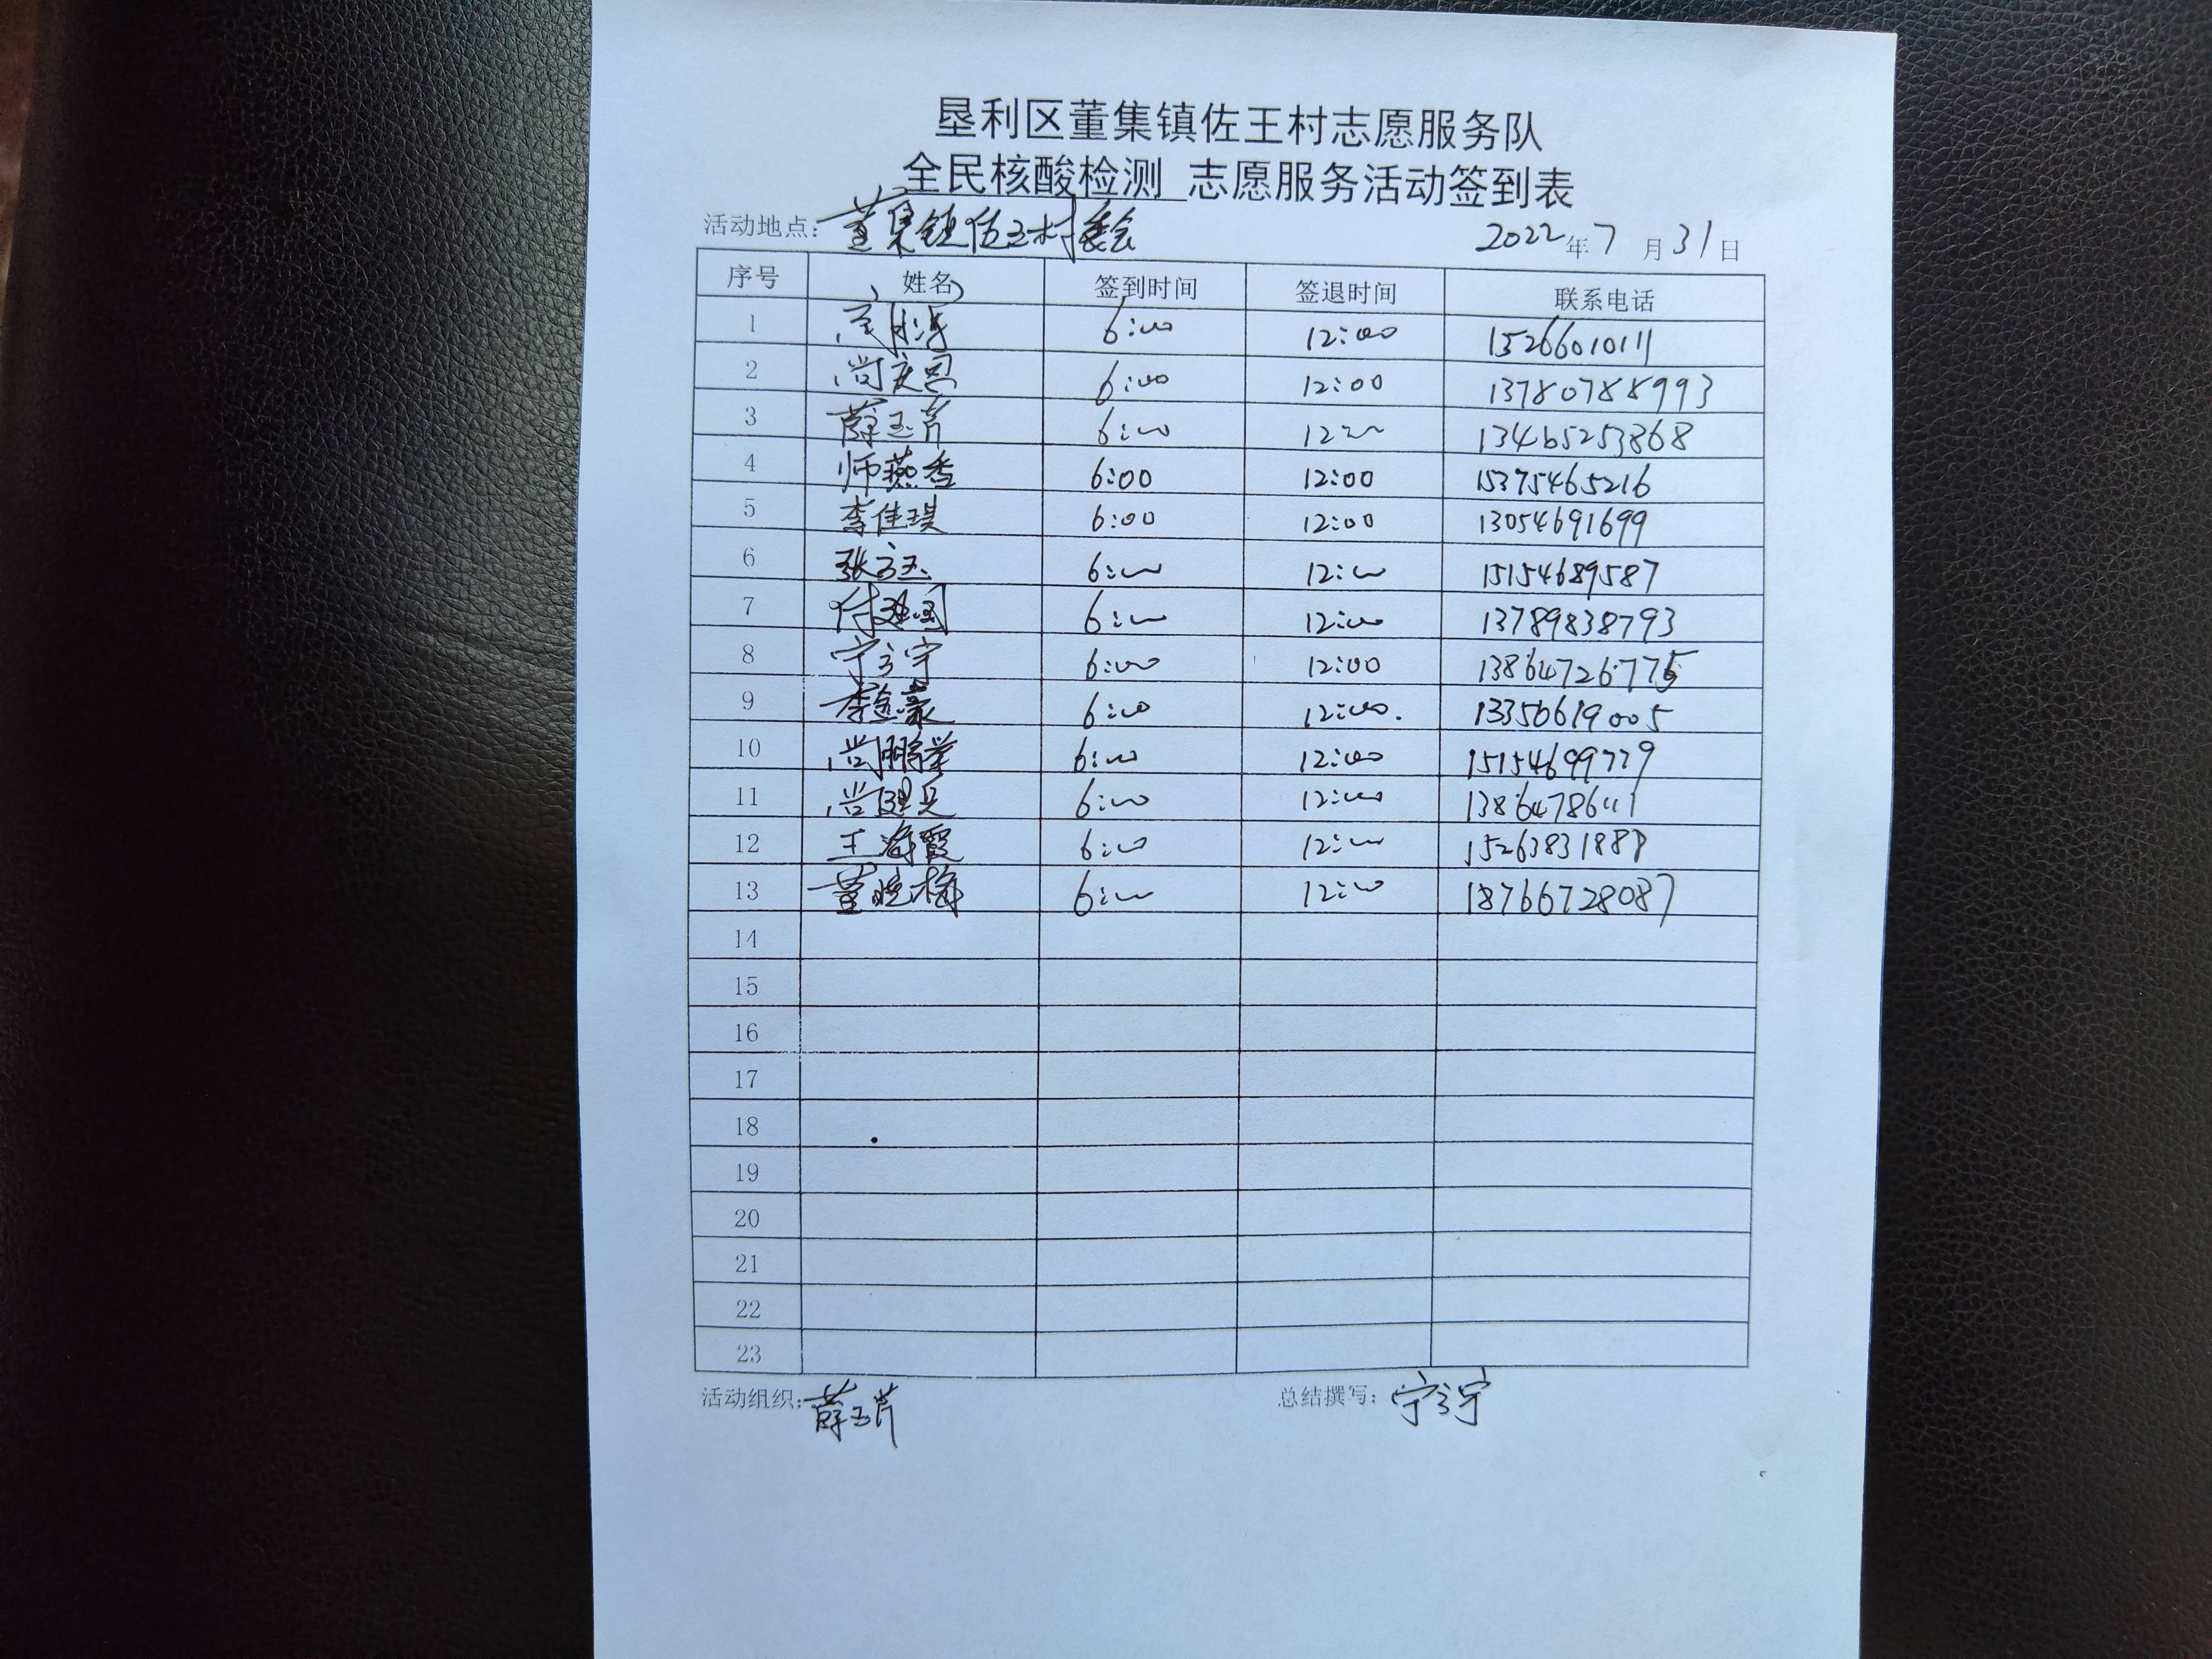 垦利区董集镇佐王村志愿服务队
全民核酸检测 志愿服务活动签到表
活动地点：董集镇佐王村委会 2022年7月31日
序号 姓名 签到时间 签退时间 联系电话
1 6:00 12:00 15266010111
2 尚庆 6:00 12:00 13780788993
3 薛玉芹 6:00 12:00 13465253868
4 师燕香 6:00 12:00 15375465216
5 李佳琪 6:00 12:00 13054691699
6 张方玉 6:00 12:00 15154689587
7 付建国 6:00 12:00 13789838793
8 宁方宇 6:00 12:00 13864726775
9 李金豪 6:00 12:00. 13356619005
10 尚鹏举 6:00 12:00 15154699779
11 尚建 6:00 12:00 13864786111
12 王海霞 6:00 12:00 15263831888
13 董晓梅 6:00 12:00 18766728087
14
15
16
17
18
19
20
21
22
23
活动组织：薛玉芹 总结撰写：宁方宇